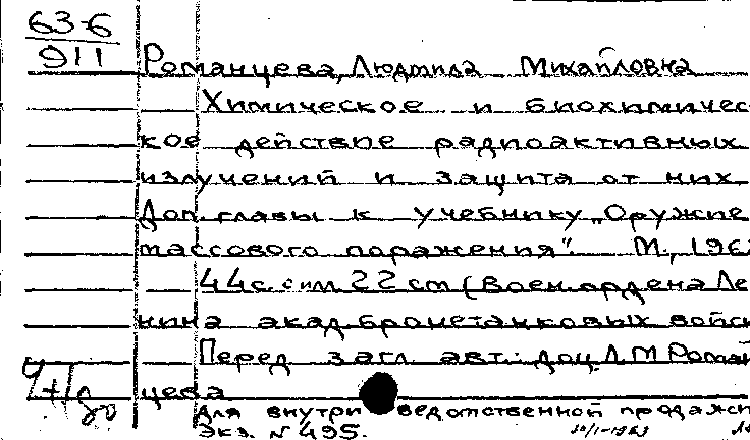 63-6
911
Романцева, Людмила Михайловна
Химическое и биохимичес
кое действие радиоактивных
излучений и защита от них
Доп. главы к учебнику „Оружие
массового поражения". М., 196
44 с. с илл. 22 см (Воен. ордена Ле
нина акад. бронетанковых войск
Перед загл. авт.: доц. Л.М. Роман
цева
Для внутриведомственной продажи
Экз. № 495.